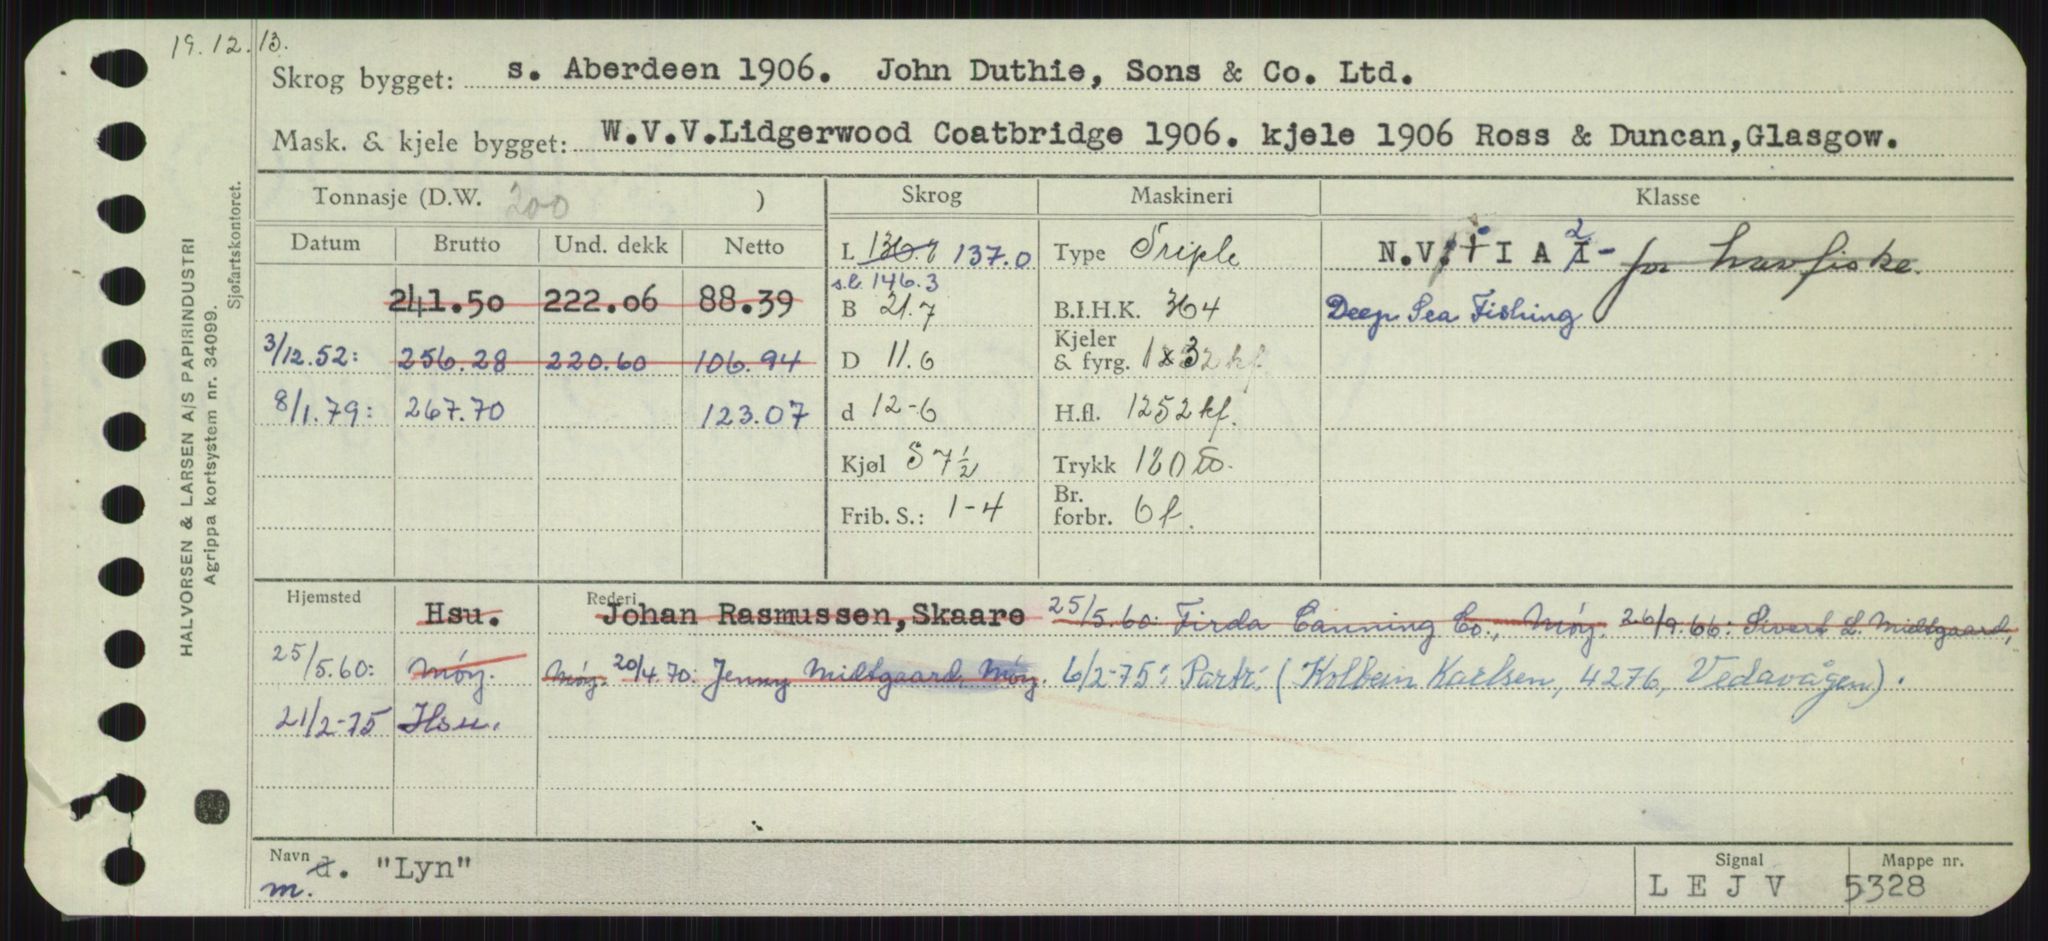 19.12.13.
Skrog bygget: s. Aberdeen 1906. John Duthie, Sons & Co. Ltd.
Mask. & kjele bygget: W.V.V.Lidgerwood Coatbridge 1906. kjele 1906 Ross & Duncan,Glasgow.
Tonnasje (D.W. 200 ) Skrog Maskineri Klasse
Datum Brutto Und. dekk Netto L 136.8 137.0 Type Triple N.V. I A 2 - for havfiske.
s.l. 146.3
241.50 222.06 88.39 B 21.7 B.I.H.K. 364 Deep Sea Fishing
3/12.52: 256.28 220.60 106.94 D 11.6 Kjeler & fyrg. 1 x 3
8/1.79: 267.70 123.07 d 12-6 H.fl. 1252 kf.
Kjøl S 7½ Trykk 180
Frib. S.: 1-4 Br. forbr. 6 f.
Hjemsted Hsu. Rederi Johan Rasmussen,Skaare 25/5.60: Firda Canning Co., Møy. 26/9.66: Sivert L. Midtgaard,
25/5.60: Møy. Møy. 20/4.70: Jenny Midtgaard, Møy. 6/2-75: Partr. (Kolbein Karlsen, 4276, Vedavågen).
21/2-75 Hsu.
Navn d. "Lyn" Signal Mappe nr.
m. L E J V 5328
HALVORSEN & LARSEN A/S PAPIRINDUSTRI
Agrippa kortsystem nr. 34099.
Sjøfartskontoret.